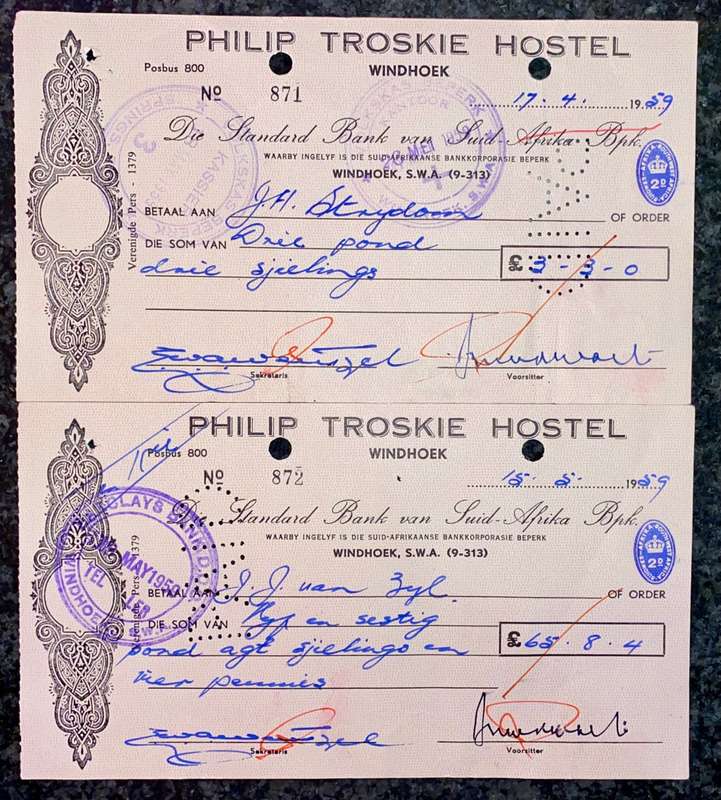 PHILIP TROSKIE HOSTEL
Posbus 800
WINDHOEK
No 871
17.4.1959
Die Standard Bank van Suid-Afrika Bpk.
WAARBY INGELYF IS DIE SUID-AFRIKAANSE BANKKORPORASIE BEPERK
WINDHOEK, S.W.A. (9-313)
2D
Verenigde Pers - 1379
BETAAL AAN J.H. Strydom OF ORDER
DIE SOM VAN Drie pond
drie sjielings
£ 3-3-0
Sekretaris
Voorsitter
PHILIP TROSKIE HOSTEL
Posbus 800
WINDHOEK
No 872
15.5.1959
Die Standard Bank van Suid-Afrika Bpk.
WAARBY INGELYF IS DIE SUID-AFRIKAANSE BANKKORPORASIE BEPERK
WINDHOEK, S.W.A. (9-313)
2D
MAY 1959
Verenigde Pers - 1379
BETAAL AAN J.J. van Zyl OF ORDER
DIE SOM VAN Vyf en sestig
pond agt sjielings en
vier pennies
£ 65.8.4
Sekretaris
Voorsitter